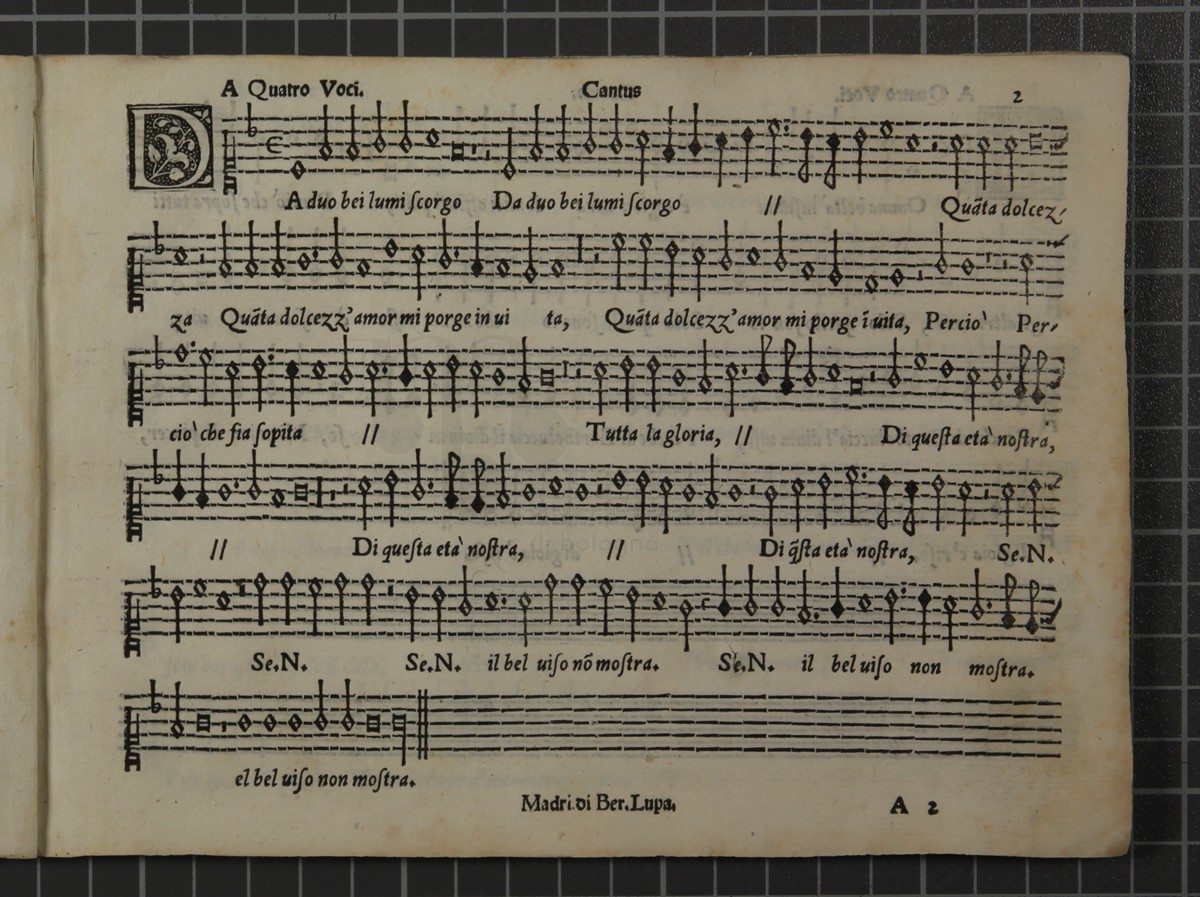 A Quatro Voci. Cantus 2
DA duo bei lumi ſcorgo Da duo bei lumi ſcorgo // Quāta dolcez⸗
za Quāta dolcezz'amor mi porge in ui ta, Quāta dolcezz'amor mi porge ī uita, Percio` Per⸗
cio` che ſia ſopita // Tutta la gloria, // Di queſta eta` noſtra,
// Di queſta eta` noſtra, // Di q̄ſta eta` noſtra, Se.N.
Se.N. Se.N. il bel uiſo nō moſtra. Se.N. il bel uiſo non moſtra.
el bel uiſo non moſtra.
Madri.di Ber.Lupa. A 2